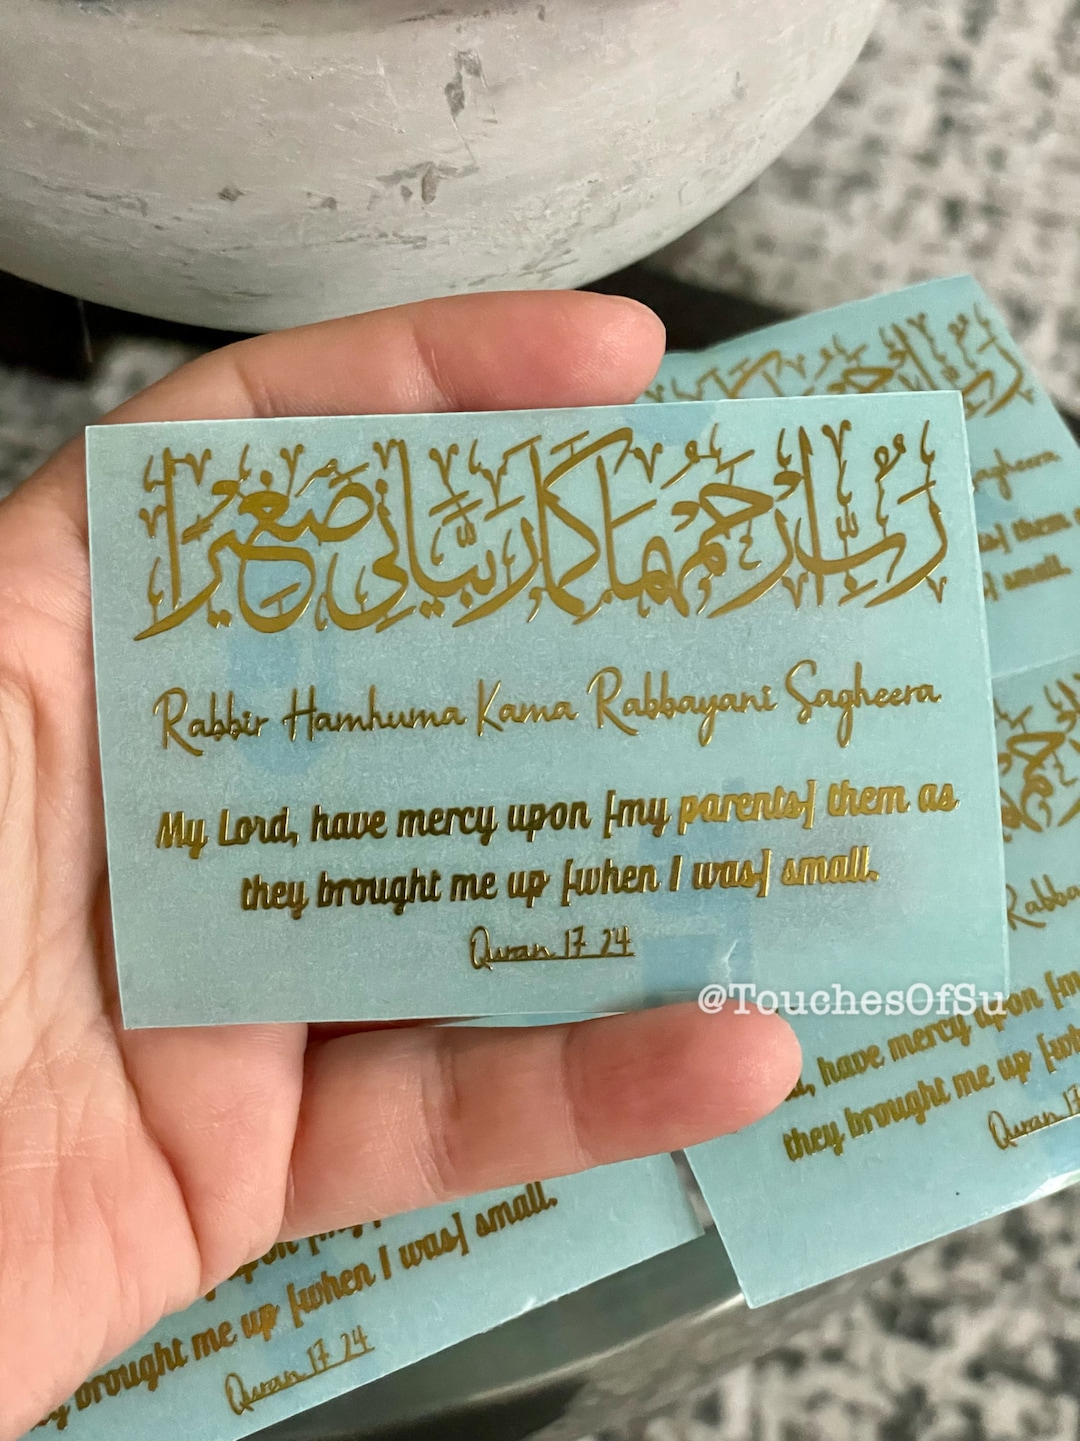 رَبِّ ارْحَمْهُمَا كَمَا رَبَّيَانِي صَغِيرًا
Rabbir Hamhuma Kama Rabbayani Sagheera
My Lord, have mercy upon [my parents] them as
they brought me up [when I was] small.
Quran 17 24
@TouchesOfSu
agheera
them
small.
Rabba
have mercy upon [m
they brought me up [wh
Quran 17
upon
small.
brought me up [when I was] small.
Quran 17 24